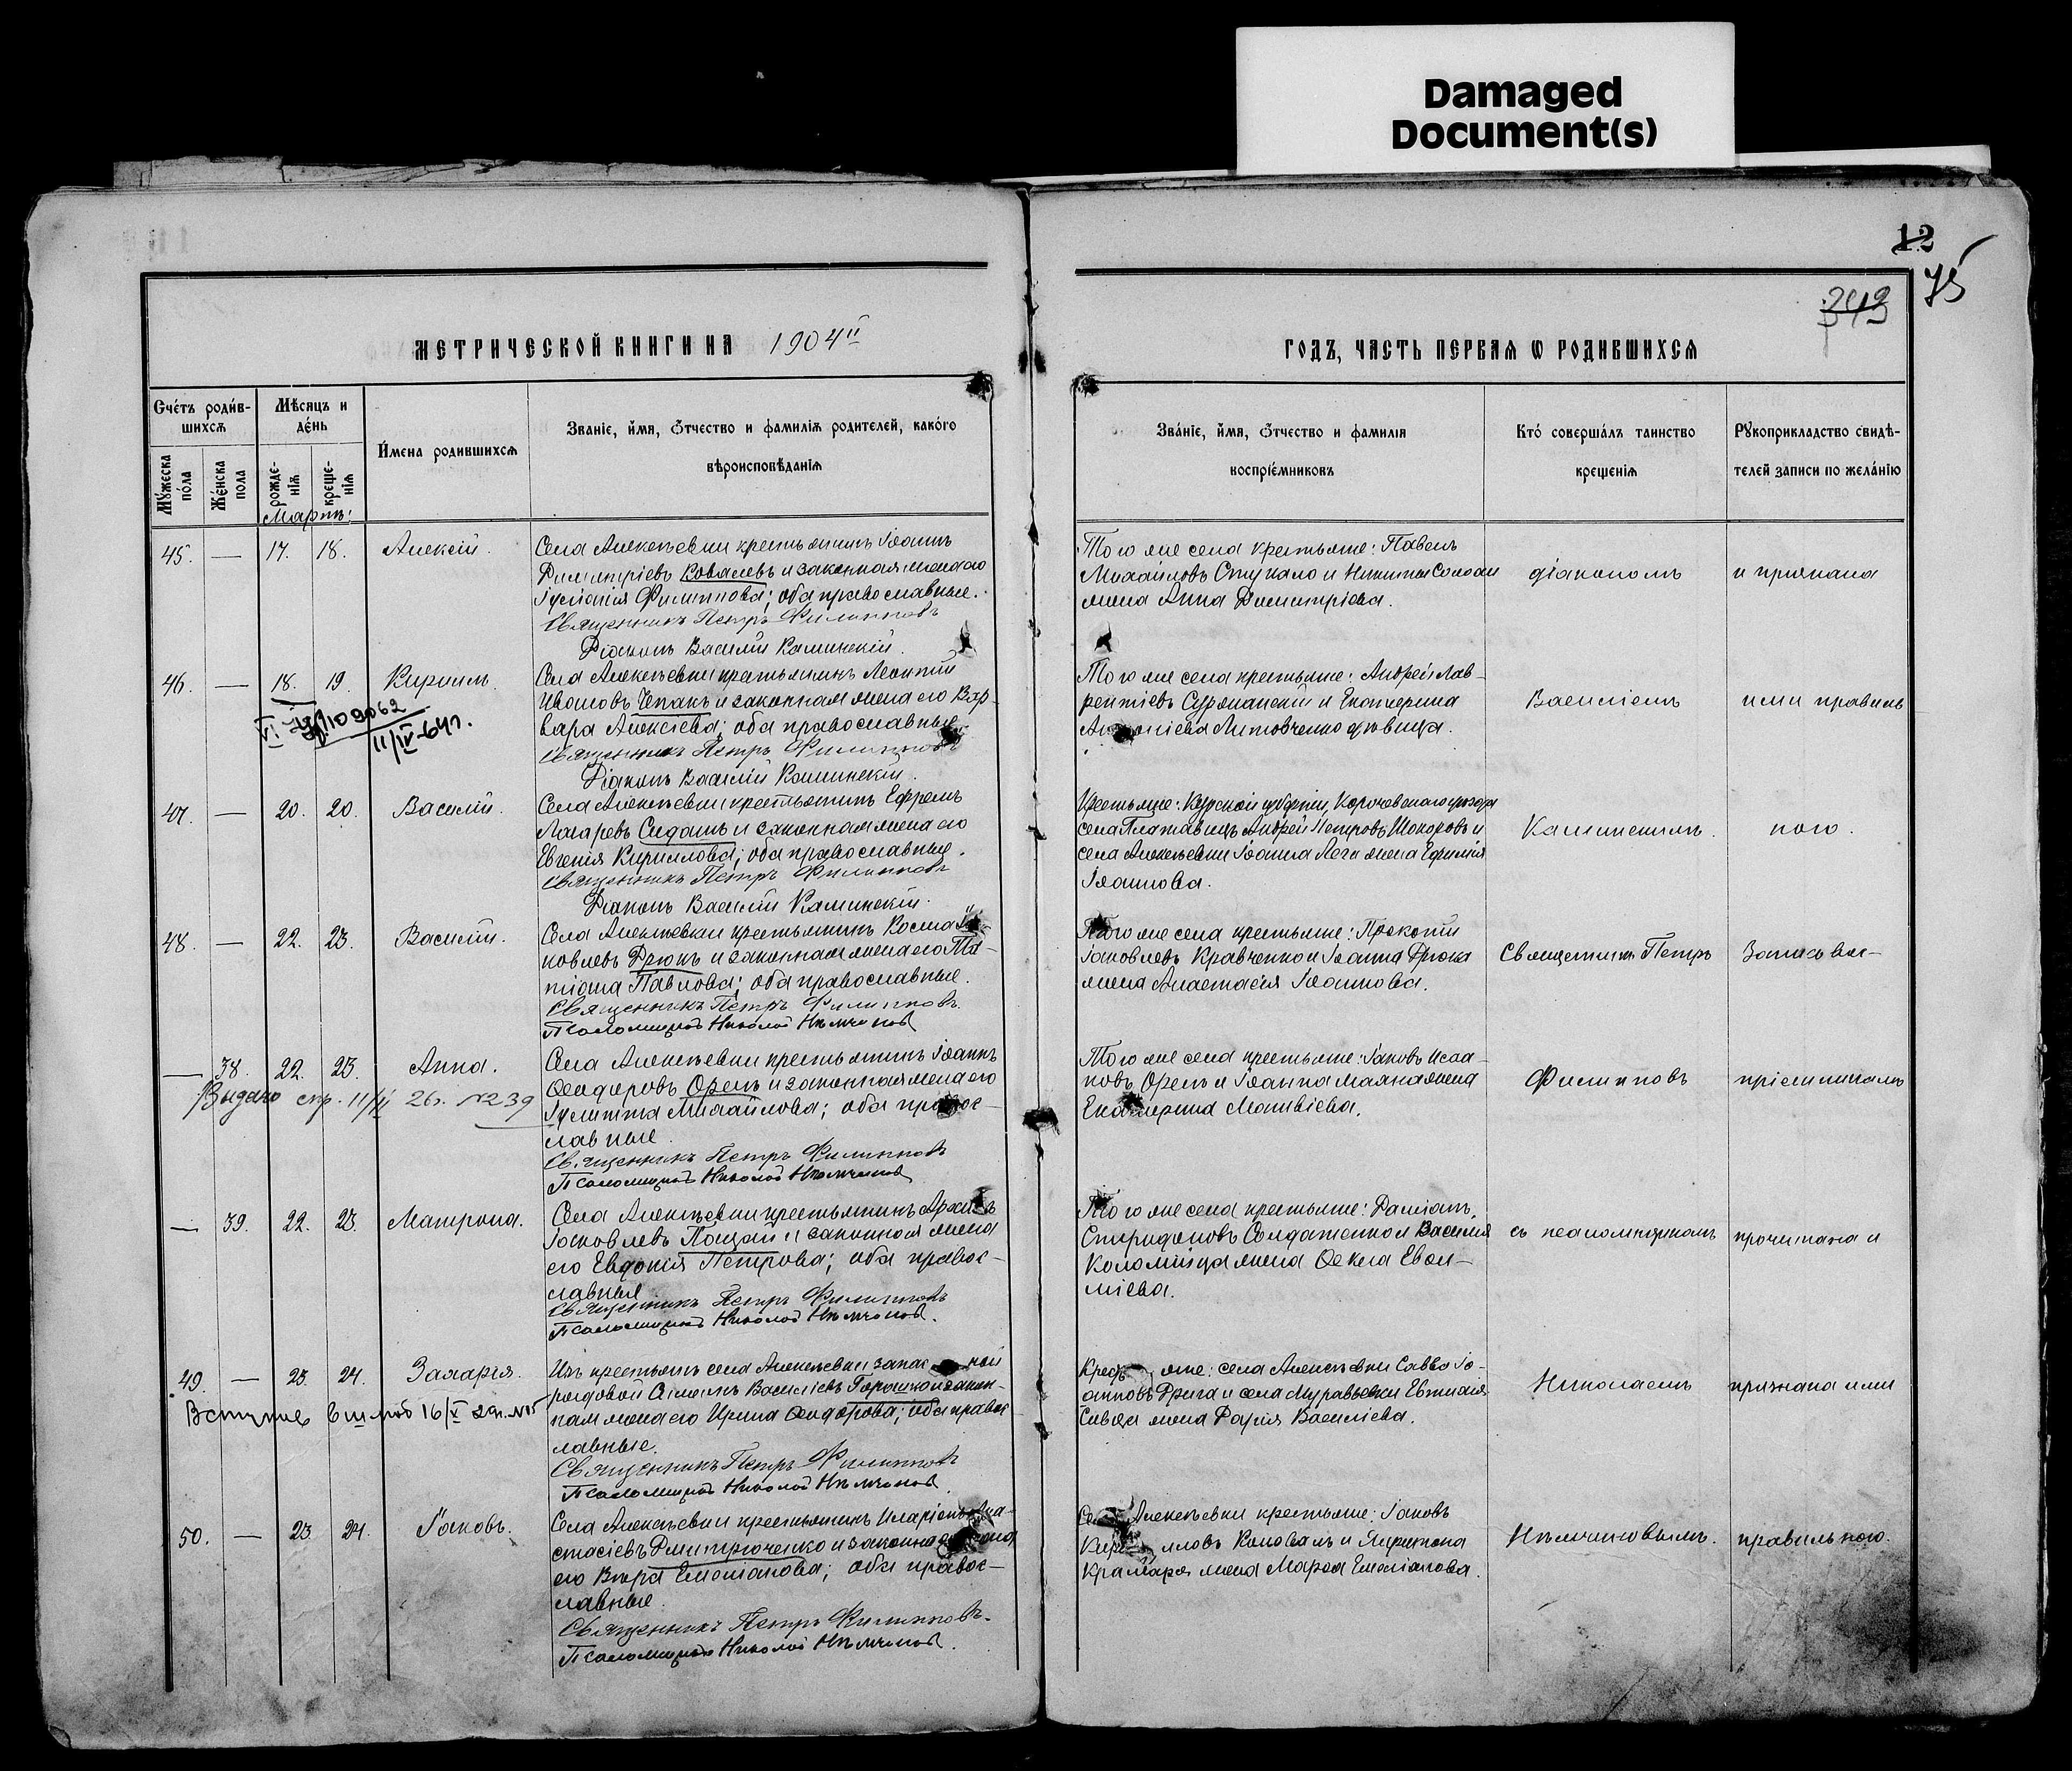 Damaged
Document(s)
12
75
343
МЕТРИЧЕСКОЙ КНИГИ НА 1904й
ГОДЪ, ЧАСТЬ ПЕРВАЯ Ѡ РОДИВШИХСЯ
Счетъ родив-
шихся
Мѣсяцъ и
день
Мужеска
пола
Женска
пола
рожде-
нія
креще-
нія
Имена родившихся
Званіе, имя, отчество и фамилія родителей, какого
вѣроисповѣданія
Званіе, имя, отчество и фамилія
воспріемниковъ
Кто совершалъ таинство
крещенія
Рукоприкладство свидѣ-
телей записи по желанію
Мартъ:
45. — 17. 18. Алексій.
Села Алексѣевки крестьянинъ Іоаннъ
Димитріевъ Ковалевъ и законная жена его
Филиппова; оба православные.
Священникъ Петръ Филипповъ
Діаконъ Василій Калинскій.
Того же села крестьяне: Павелъ
Михайловъ Стукало и Никиты
жена Анна Димитріева.
діакономъ
и признана
46. — 18. 19. Кириллъ.
11/IV-64г.
Села Алексѣевки крестьянинъ Леонтій
Ивановъ Чепакъ и законная жена его Вар-
вара Алексіева; оба православные.
Священникъ Петръ Филипповъ
Діаконъ Василій Калинскій.
Того же села крестьяне: Андрей Лав-
рентіевъ Суржанскій и Екатерина
Литовченко дѣвица.
Василіемъ
ими правиль
47. — 20. 20. Василій.
Села Алексѣевки крестьянинъ Ефремъ
Лазаревъ Сидашъ и законная жена его
Евгенія Кириллова; оба православные.
Священникъ Петръ Филипповъ
Діаконъ Василій Калинскій.
Крестьяне: Курской губерніи, Корочанскаго уѣзда
села Андрей Петровъ Шокоровъ и
села Алексѣевки Іоанна жена Ефимія
Іоаннова.
Калинскимъ.
ною.
48. — 22. 23. Василій.
Села Алексѣевки крестьянинъ Косма Іа-
ковлевъ Дрюкъ и законная жена его Та-
тіана Павлова; оба православные.
Священникъ Петръ Филипповъ.
Псаломщикъ Николай Нѣмчиновъ
Того же села крестьяне: Прокопій
Іаковлевъ Кравченко и Іоанна Дрюка
жена Анастасія Іоаннова.
Священникъ Петръ
Запись вос-
— 38. 22. 23. Анна.
Выдано спр. 11/II 26г. №239
Села Алексѣевки крестьянинъ Іоаннъ
Ѳеодоровъ Орелъ и законная жена его
Іулитта Михайлова; оба правос-
лавные.
Священникъ Петръ Филипповъ
Псаломщикъ Николай Нѣмчиновъ
Того же села крестьяне: Іаковъ Исаа-
ковъ Орелъ и Іоанна жена
Екатерина Матвіева.
Филипповъ
пріемниками
— 39. 22. 23. Матрона.
Села Алексѣевки крестьянинъ Архипъ
Іаковлевъ Лощай и законная жена
его Евдокія Петрова; оба правос-
лавные
Священникъ Петръ Филипповъ
Псаломщикъ Николай Нѣмчиновъ.
Того же села крестьяне: Даміанъ
Спиридоновъ Солдатенко и Василія
Коломійца жена Ѳекла Евѳи-
міева.
съ псаломщикомъ
прочитана и
49. — 23. 24. Захарія.
Вступил в 16/X 29г. №15
Изъ крестьянъ села Алексѣевки запасной
рядовой Василіевъ Горошко и закон-
ная жена его Ирина Ѳеодорова; оба правос
лавные.
Священникъ Петръ Филипповъ
Псаломщикъ Николай Нѣмчиновъ.
Крестьяне: села Алексѣевки Савва Іо-
анновъ Дрига и села Муравьевки Евѳимія
Сивца жена Дарія Василіева.
Николаемъ
признана ими
50. — 23. 24. Іаковъ.
Села Алексѣевки крестьянинъ Иларіонъ Ана-
стасіевъ Дмитрюченко и законная жена
его Вѣра Емеліанова; оба правос-
лавные.
Священникъ Петръ Филипповъ.
Псаломщикъ Николай Нѣмчиновъ.
Села Алексѣевки крестьяне: Іаковъ
Кирилловъ Коновалъ и Харитона
Крамаря жена Марѳа Емеліанова.
Нѣмчиновымъ.
правильною.